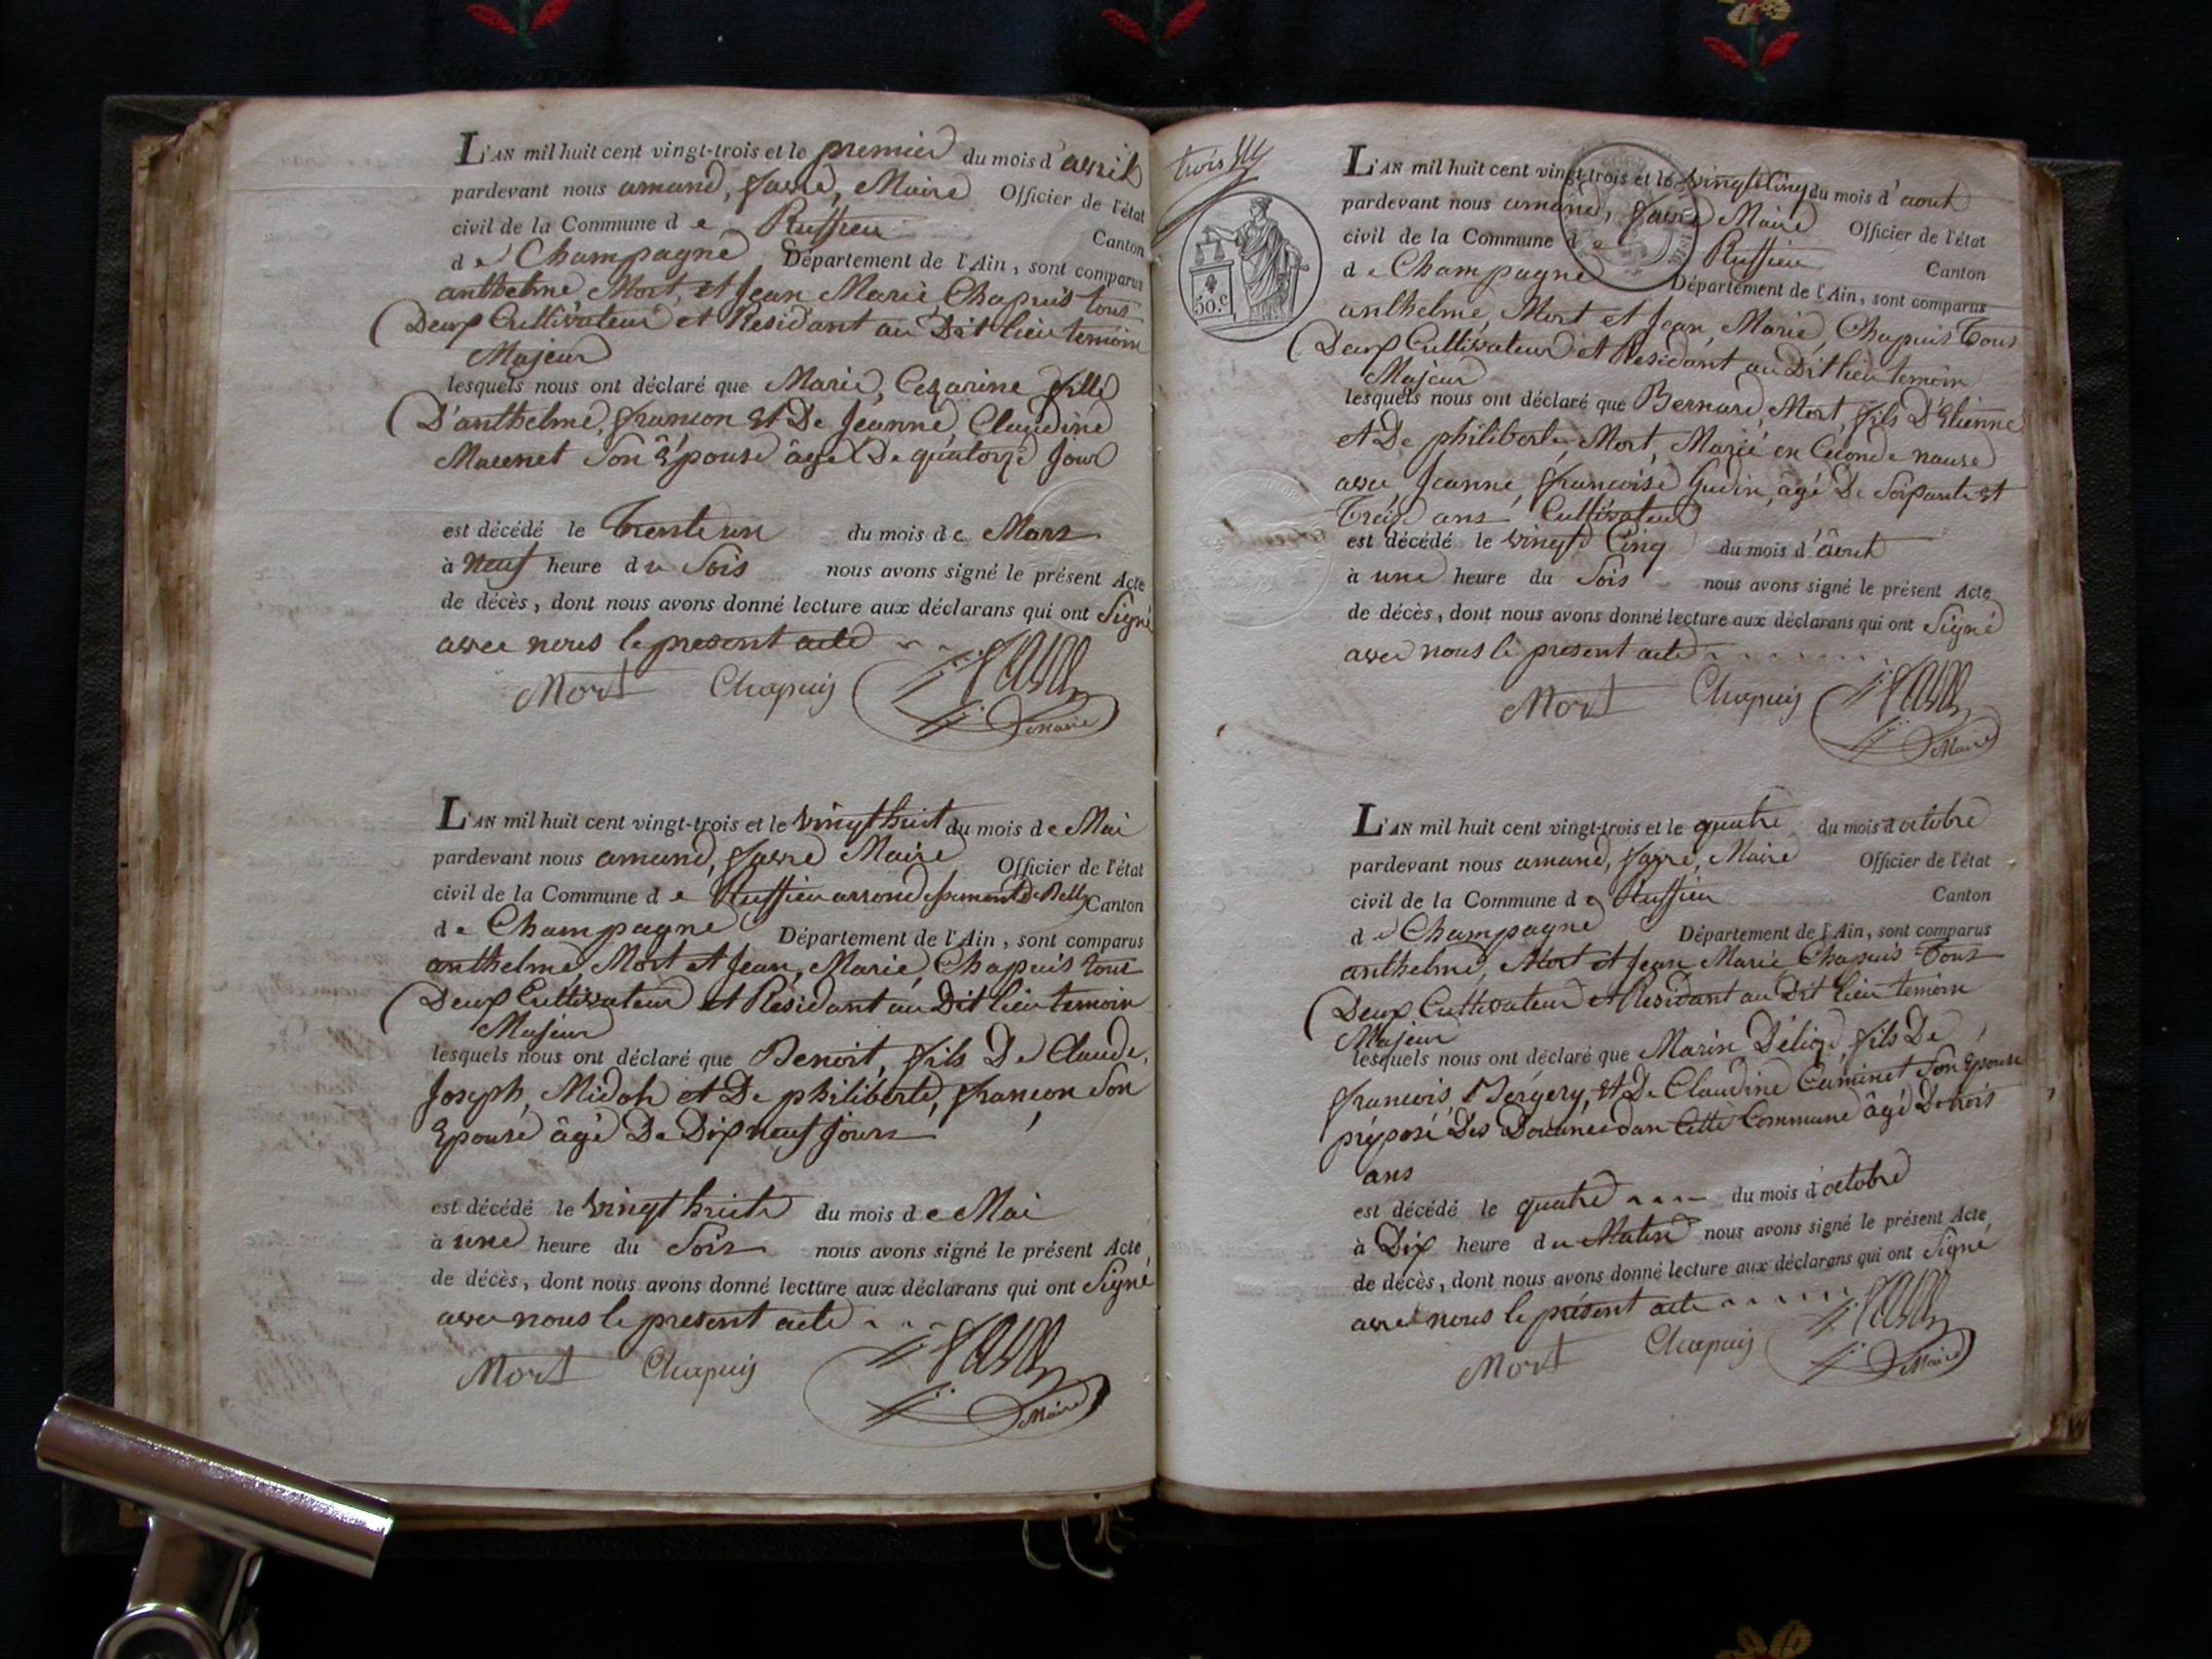 L'AN mil huit cent vingt-trois et le premier du mois d'avril
pardevant nous amand, favre, Maire Officier de l'état
civil de la Commune de Ruffieu Canton
de Champagne Département de l'Ain, sont comparus
anthelme Mort, et Jean Marie Chapuis tous
Deux Cultivateur et Residant au Dit lieu temoin
Majeur
lesquels nous ont déclaré que Marie, Cezarine fille
D'anthelme, françon et De Jeanne, Claudine
son Epouse âgé De quatorze Jour
est décédé le Trente un du mois de Mars
à Neuf heure du Soir nous avons signé le présent Acte
de décès, dont nous avons donné lecture aux déclarans qui ont Signé
avec nous le present acte
Mort Chapuis favre
Maire
L'AN mil huit cent vingt-trois et le vingt huit du mois de Mai
pardevant nous amand, favre Maire Officier de l'état
civil de la Commune de Ruffieu arrondissement De Belley Canton
de Champagne Département de l'Ain, sont comparus
anthelme, Mort et Jean, Marie, Chapuis tous
Deux Cultivateur et Residant au Dit lieu temoin
Majeur
lesquels nous ont déclaré que Benoit, fils De Claude,
Joseph, Midol et De philiberte, françon Son
Epouse âgé De Dix neuf Jours
est décédé le vingt huit du mois de Mai
à une heure du Soir nous avons signé le présent Acte
de décès, dont nous avons donné lecture aux déclarans qui ont Signé
avec nous le present acte
Mort Chapuis favre
Maire
trois
50.c
L'AN mil huit cent vingt-trois et le vingt Cinq du mois d'aout
pardevant nous amand, favre Maire Officier de l'état
civil de la Commune de Ruffieu Canton
de Champagne Département de l'Ain, sont comparus
anthelme, Mort et Jean, Marie, Chapuis Tous
Deux Cultivateur et Residant au Dit lieu temoin
Majeur
lesquels nous ont déclaré que Bernard, Mort, fils D'Etienne
et De philiberte Mort, Marié en Ceconde nauce
avec Jeanne, francoise Gudin, âgé De Soixante et
Treize ans Cultivateur
est décédé le vingt Cinq du mois d'âout
à une heure du Soir nous avons signé le présent Acte
de décès, dont nous avons donné lecture aux déclarans qui ont Signé
avec nous le present acte
Mort Chapuis favre
Maire
L'AN mil huit cent vingt-trois et le quatre du mois d'octobre
pardevant nous amand, favre, Maire Officier de l'état
civil de la Commune de Ruffieu Canton
de Champagne Département de l'Ain, sont comparus
anthelme, Mort et Jean Marie Chapuis Tous
Deux Cultivateur et Residant au Dit lieu temoin
Majeur
lesquels nous ont déclaré que Marin Délioz, fils De
francois, Bergery, et De Claudine Caminet Son Epouse
préposé Des Douanes dan Cette Commune âgé De trois
ans
est décédé le quatre du mois d'octobre
à Dix heure du Matin nous avons signé le présent Acte
de décès, dont nous avons donné lecture aux déclarans qui ont Signé
avec nous le présent acte
Mort Chapuis favre
Maire